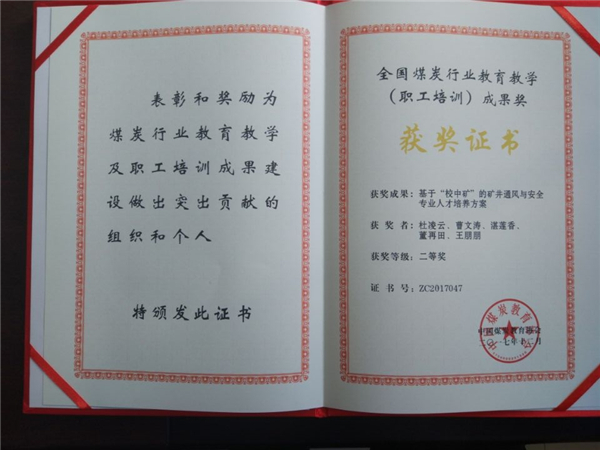 表彰和奖励为
煤炭行业教育教学
及职工培训成果建
设做出突出贡献的
组织和个人
特颁发此证书
全国煤炭行业教育教学
（职工培训）成果奖
获奖证书
获奖成果：基于“校中矿”的矿井通风与安全
专业人才培养方案
获 奖 者：杜凌云、曹文涛、谌莲香、
董再田、王朋朋
获奖等级：二等奖
证 书 号：ZC2017047
中国煤炭教育协会
二〇一七年十二月